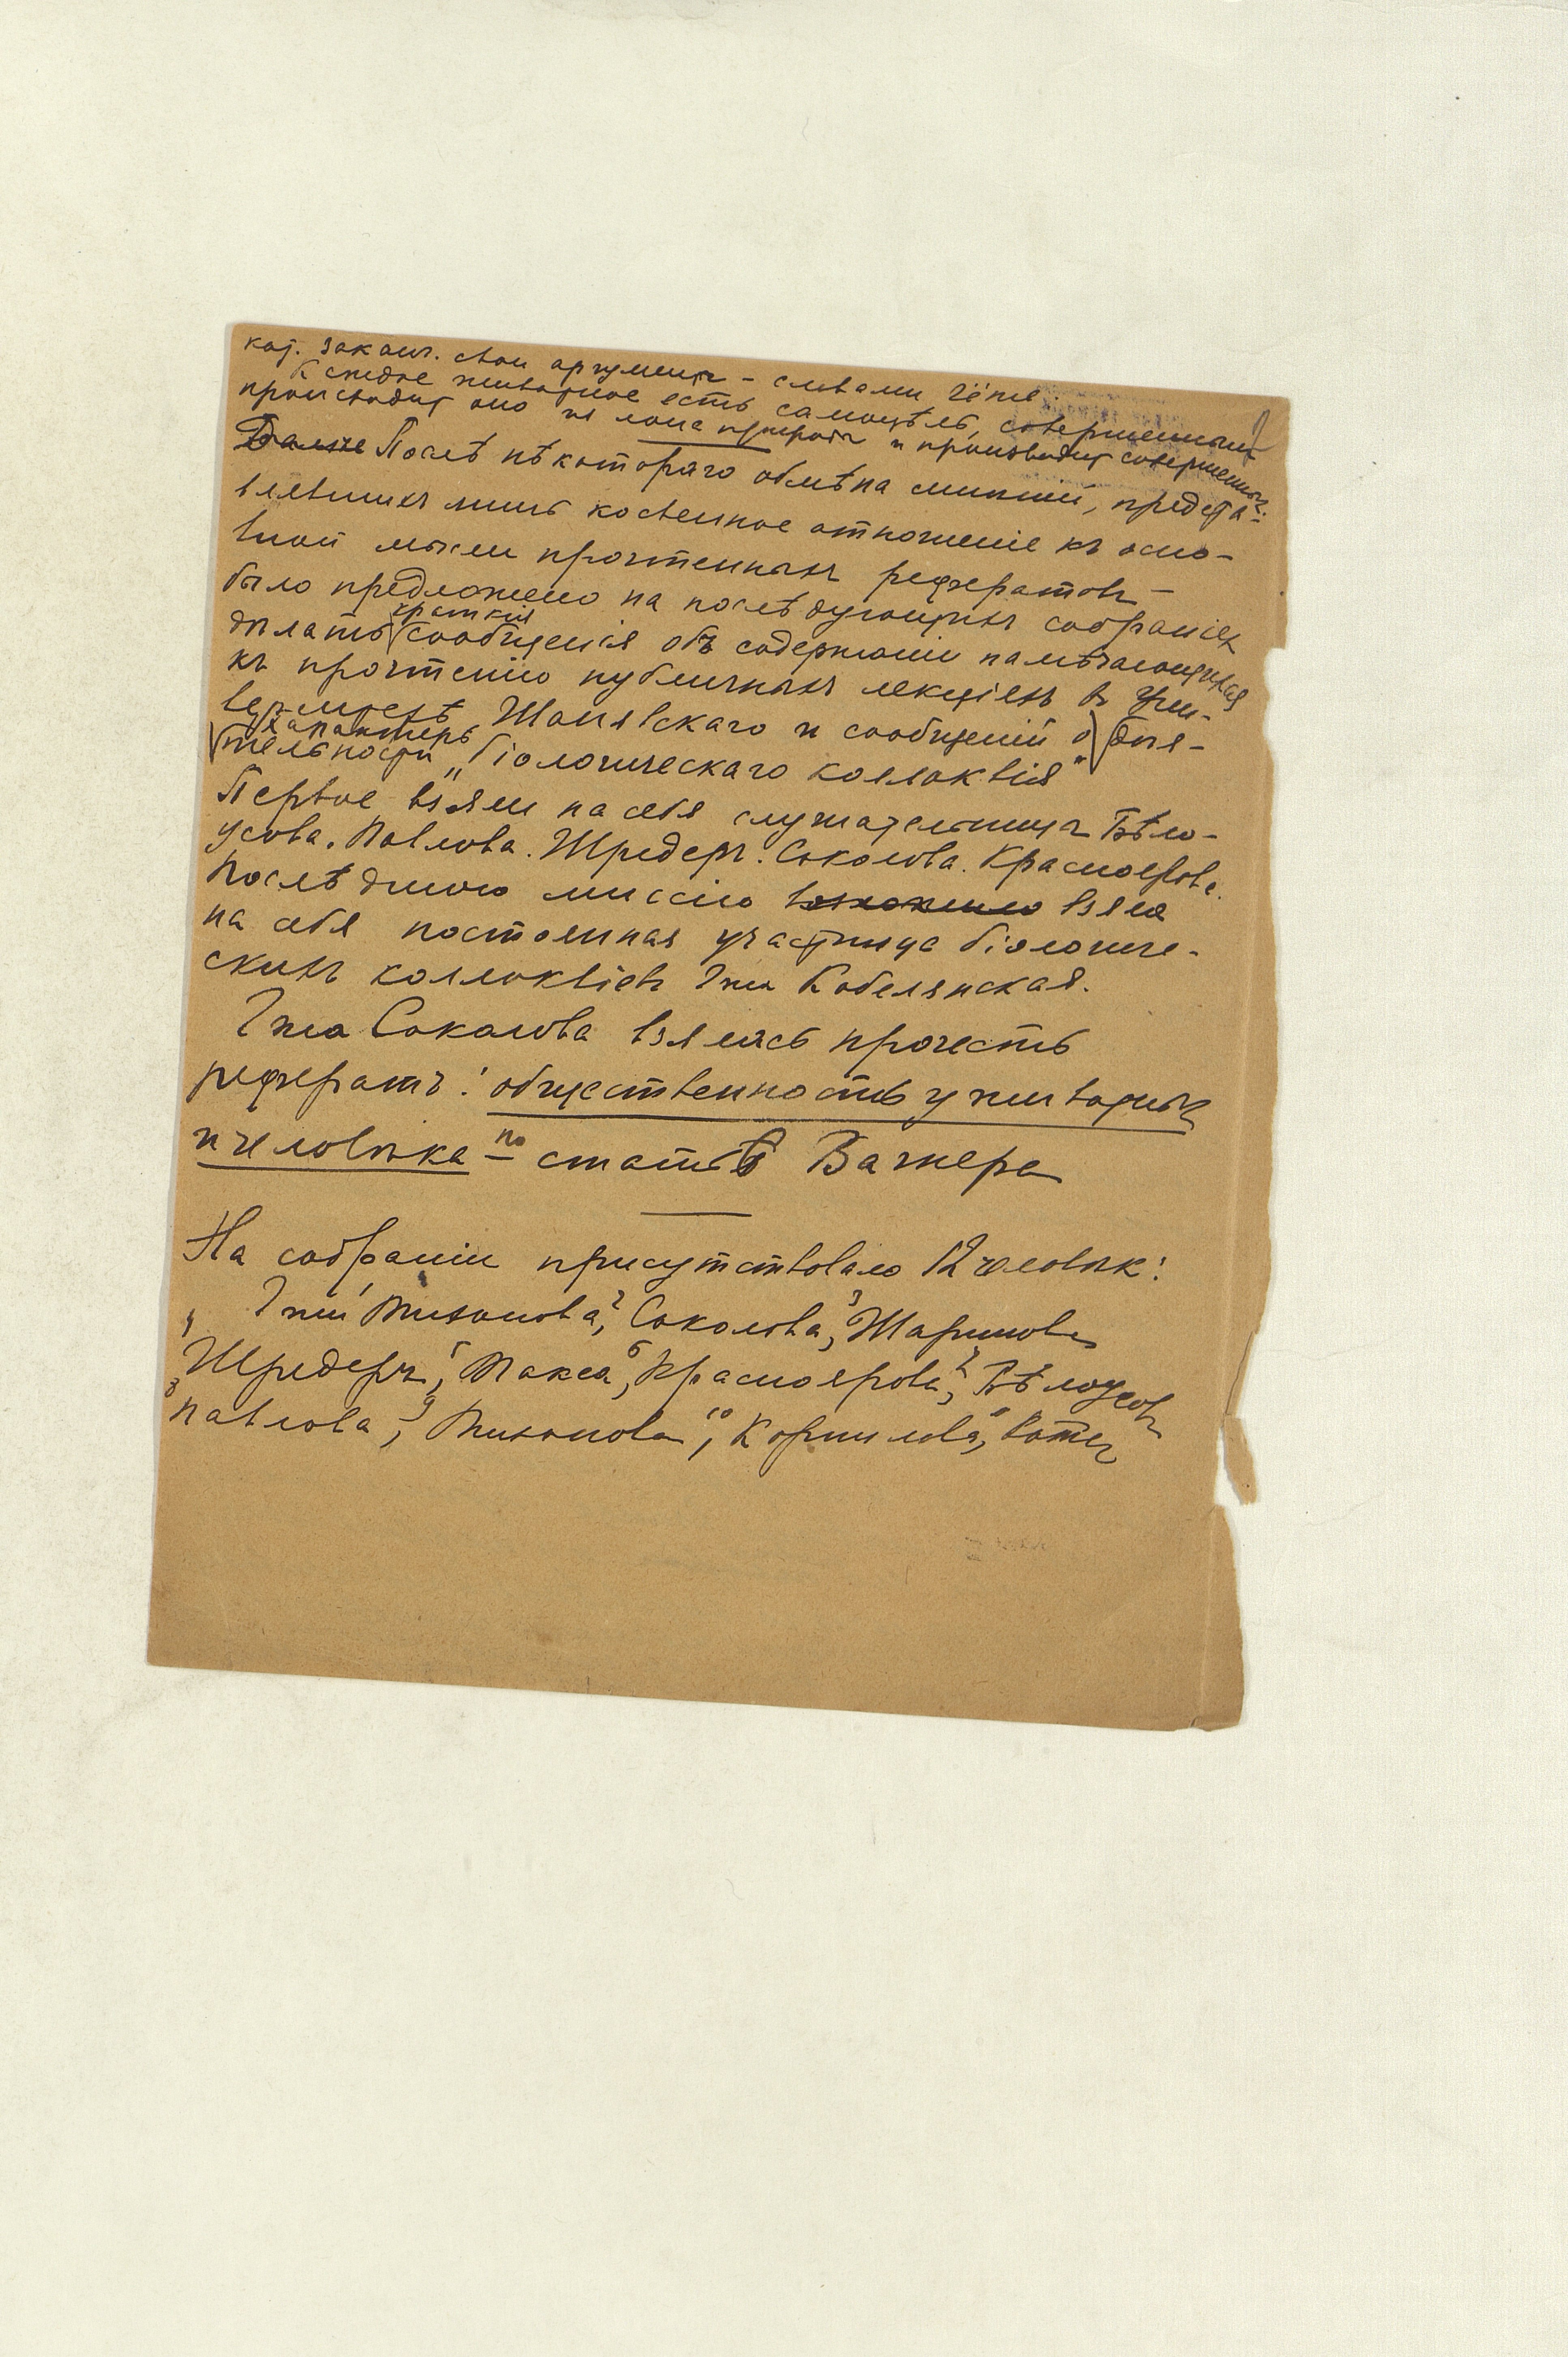 кот. законч. свои аргументы – словами Гёте:
Каждое животное есть самоцѣль, совершенным
происходит оно из лона природы и производит совершенных.
Далее Послѣ нѣкотораго обмѣна мнѣний, предста-
влявших лишь косвенное отношение къ осно-
вной мысли прочтенныхъ рефератовъ –
было предложено на послѣдующихъ собранiях
дѣлать краткiя сообщенiя объ содержанiи намѣчающихся
къ прочтенiю публичныхъ лекцiяхъ въ Уни-
верситетѣ Шанявскаго и сообщений о дѣя-
тельности характеръ „бiологическаго коллоквiя“
Первое взяли на себя слушательницы Бѣло-
усова. Павлова. Шредеръ. Соколова. Красноярова.
Послѣднюю миссiю взяла
на себя постоянная участница бiологиче-
скихъ коллоквiевъ Гжа Кобелянская.
Гжа Соколова взялась прочесть
рефератъ: общественность у животныхъ
и человѣка – по статьѣ Вагнера
На собранiи присутствовало 12 человѣк:
Гжи 1 Тихонова, 2 Соколова, 3 Шаринова
4 Шредеръ, 5 Такса, 6 Красноярова, 7 Бѣлоусова
8 Павлова, 9 Тихонова, 10 Корнилова, 11